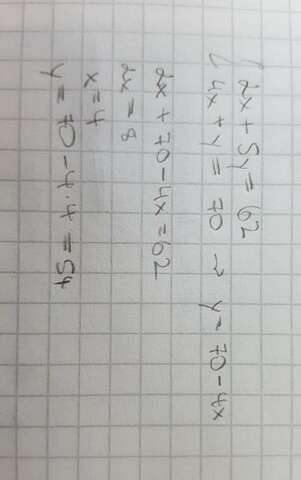 2x + 5y = 62
4x + y = 70 → y = 70 - 4x
2x + 70 - 4x = 62
2x = 8
x = 4
y = 70 - 4·4 = 54